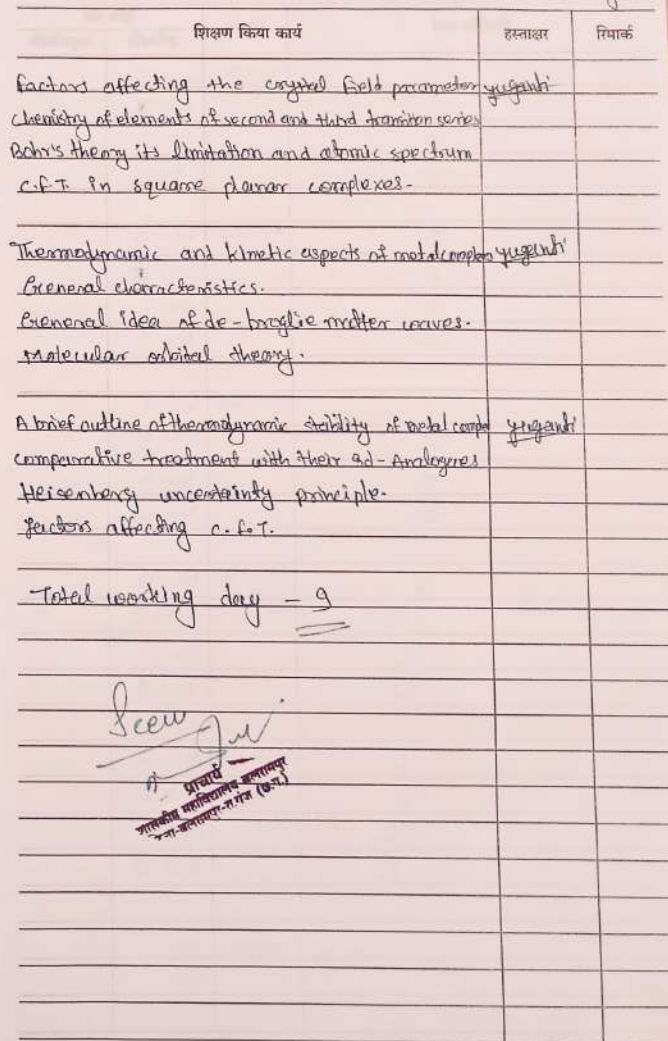 शिक्षण किया कार्य हस्ताक्षर रिमार्क
factors affecting the crystal field parameter yuganti
chemistry of elements of second and third transition series
Bohr's theory its limitation and atomic spectrum
C.F.T. in square planar complexes.
Thermodynamic and kinetic aspects of metal complex yuganti
General characteristics.
General idea of de-broglie matter waves.
Molecular orbital theory.
A brief outline of thermodynamic stability of metal comple yuganti
comparative treatment with their 3d-Analogues
Heisenberg uncertainty principle.
factors affecting C.F.T.
Total working day - 9
Seen
प्राचार्य
शासकीय महाविद्यालय बलरामपुर
जिला-बलरामपुर-रा.गंज (छ.ग.)